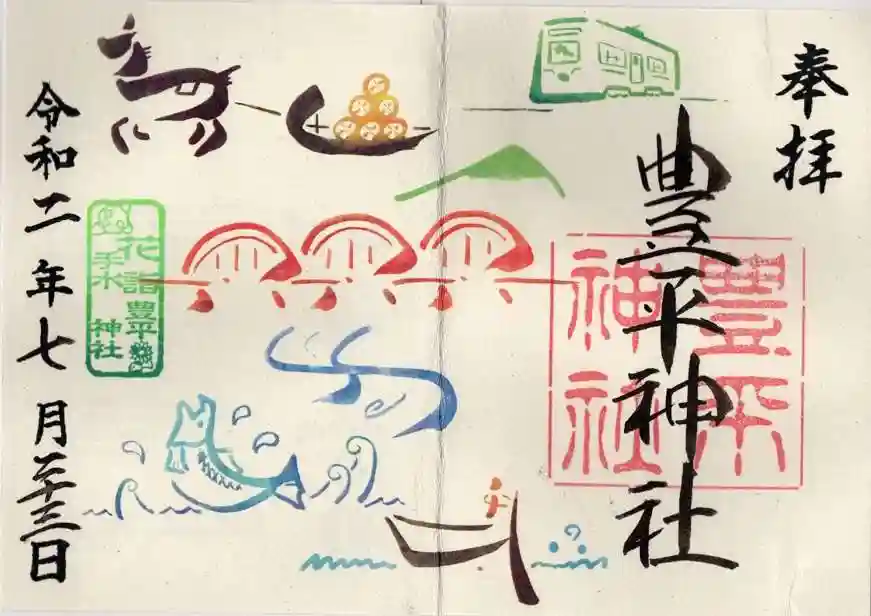 奉拝
豊平神社
豊平
神社
花詣 豊平
手水 神社
令和二年七月二十三日